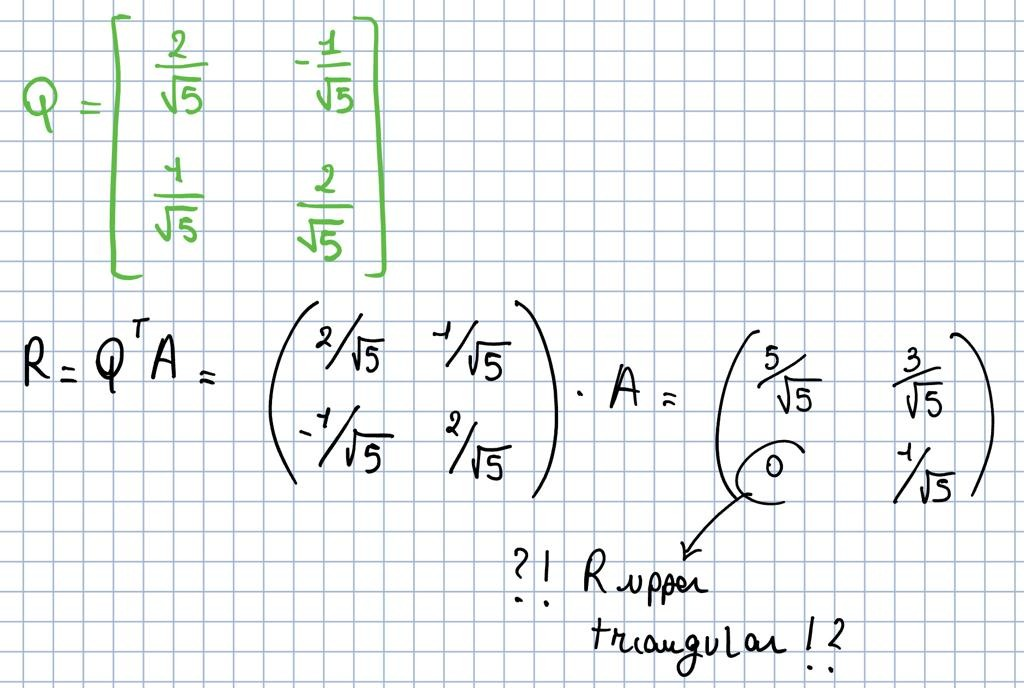 Q = [ 2/√5 -1/√5
1/√5 2/√5 ]
R = Qᵀ A = ( 2/√5 1/√5
-1/√5 2/√5 ) . A = ( 5/√5 3/√5
0 1/√5 )
?! R upper
triangular !?